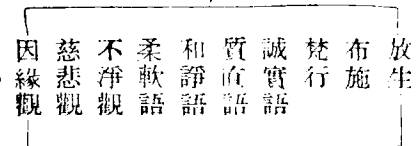 放生
布施
梵行
誠實語
質直語
和諍語
柔軟語
不淨觀
慈悲觀
因緣觀